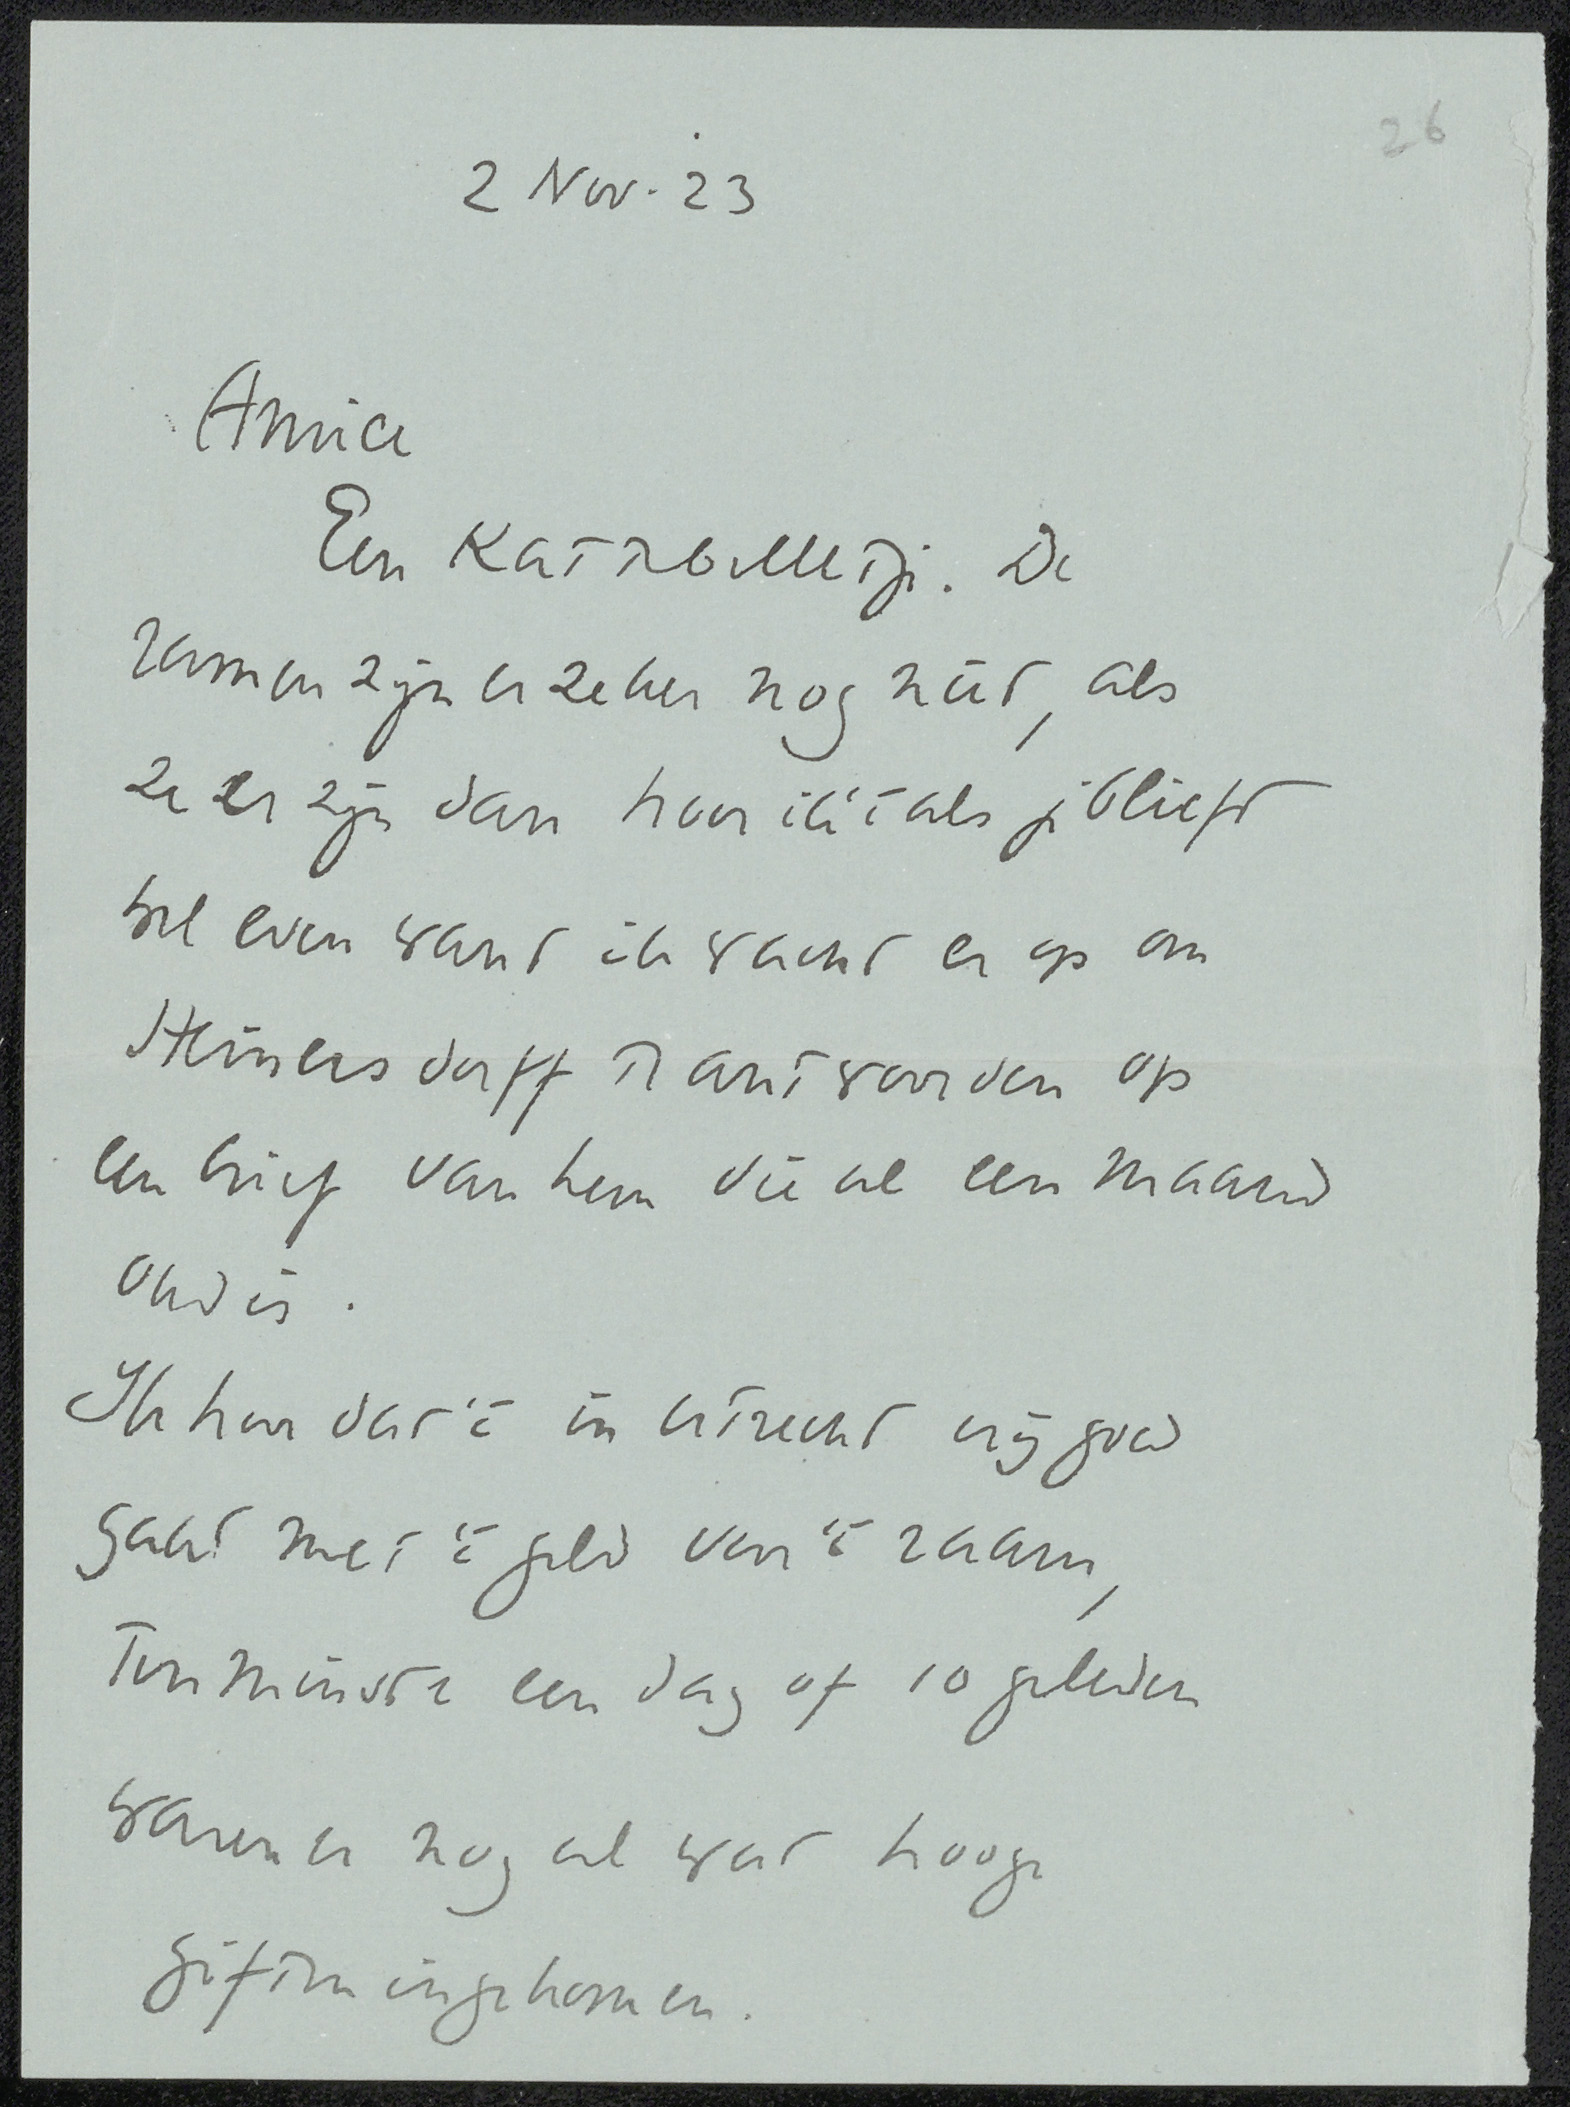 26
2 Nov. 23
Amice
Een Kattebelletje. De
ramen zijn er zeker nog niet, als
ze er zijn dan hoor ik 't als je blieft
wel even want ik wacht er op om
Heinersdorff te antwoorden op
een brief van hem die al een maand
oud is.
Ik hoor dat 't in Utrecht vrij goed
gaat met 't geld van 't raam,
tenminste een dag of 10 geleden
waren er nog al wat hooge
giften ingekomen.